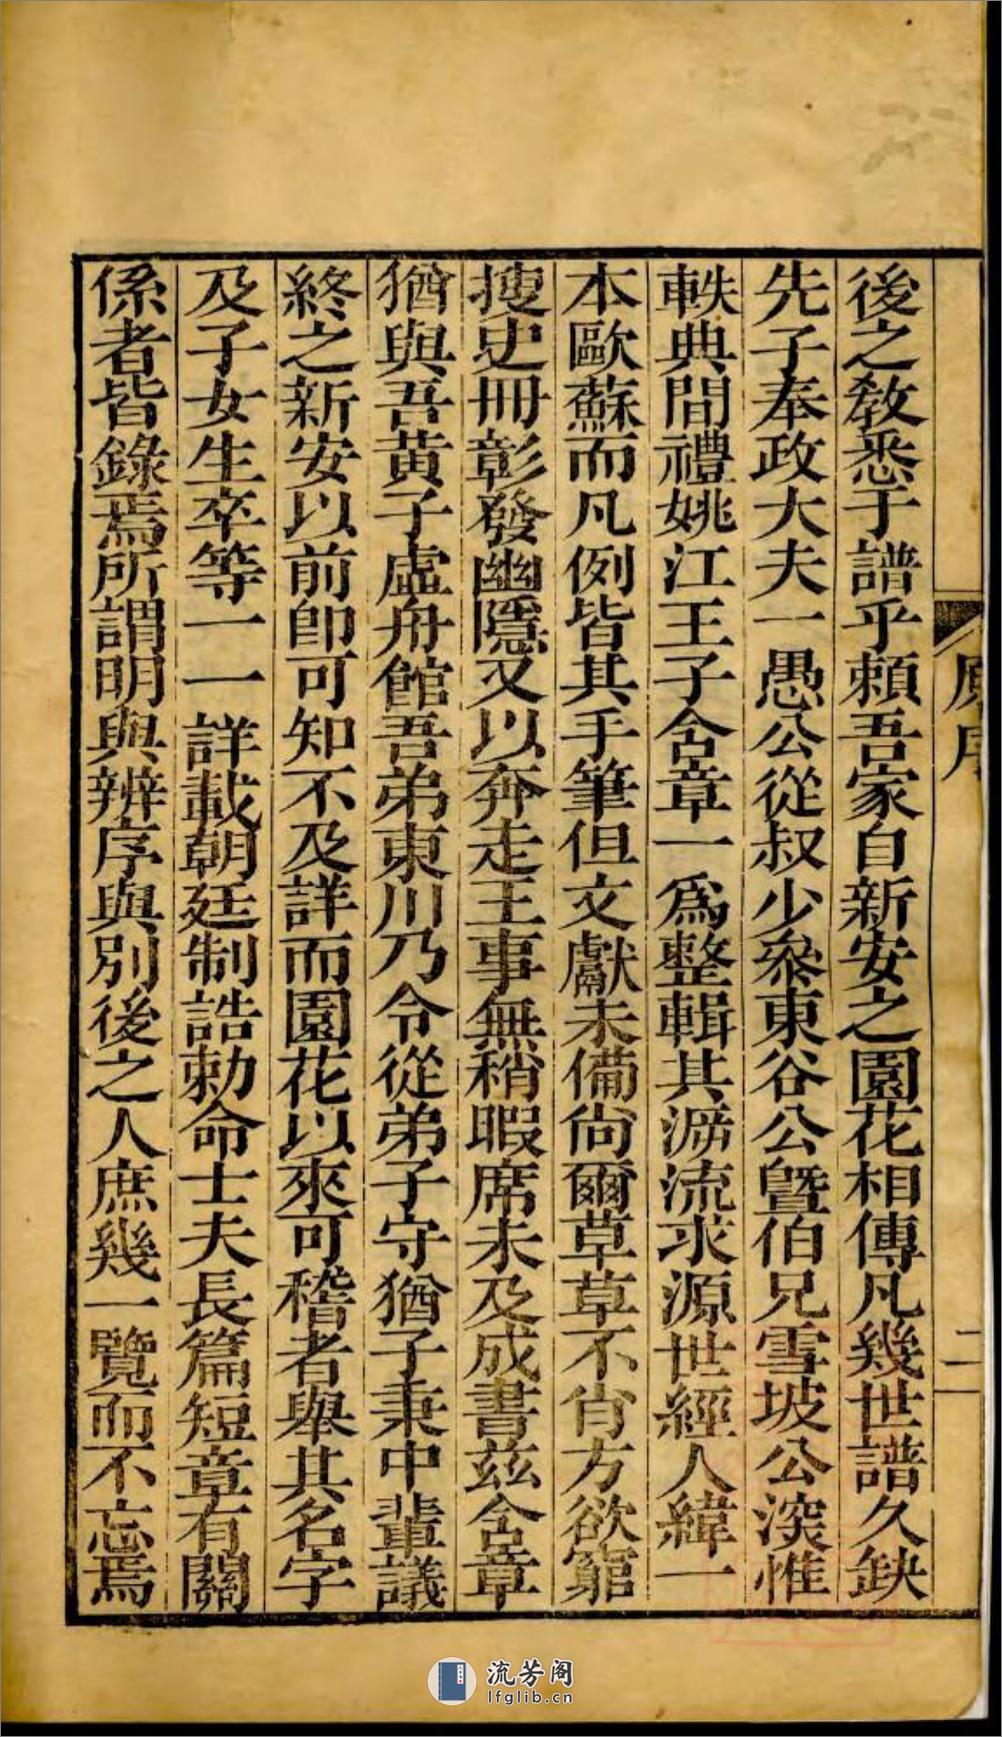 原序
二
後之教悉于譜乎頼吾家自新安之園花相傳凡幾世譜久缺
先子奉政大夫一愚公從叔少參東谷公曁伯兄雪坡公深惟
軼典間禮姚江王子含章一爲整輯其泝流求源世經人緯一
本歐蘇而凡例皆其手筆但文獻未備尙爾草草不肖方欲窮
搜史冊彰發幽隱又以奔走王事無稍暇席未及成書兹含章
猶與吾黃子虛舟館吾弟東川乃令從弟子守猶子秉中輩議
終之新安以前卽可知不及詳而園花以來可稽者舉其名字
及子女生卒等一一詳載朝廷制誥勅命士夫長篇短章有關
係者皆錄焉所謂明與辨序與別後之人庶幾一覽而不忘焉
流芳阁
lfglib.cn